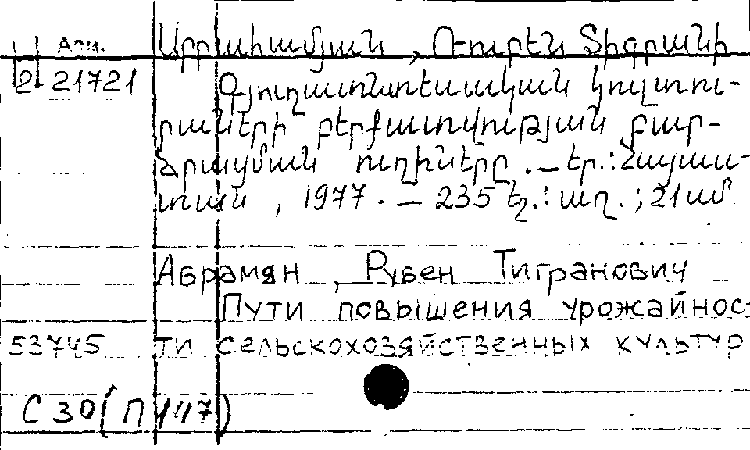 Աբրահամյան, Ռուբեն Տիգրանի
21721 Գյուղատնտեսական կուլտու-
րաների բերքատվության բար-
ձրացման ուղիները. — Եր.: Հայաս-
տան, 1977. — 235 էջ.: աղ.; 21 սմ
Абрамян, Рубен Тигранович
Пути повышения урожайнос-
53745 ти сельскохозяйственных культур